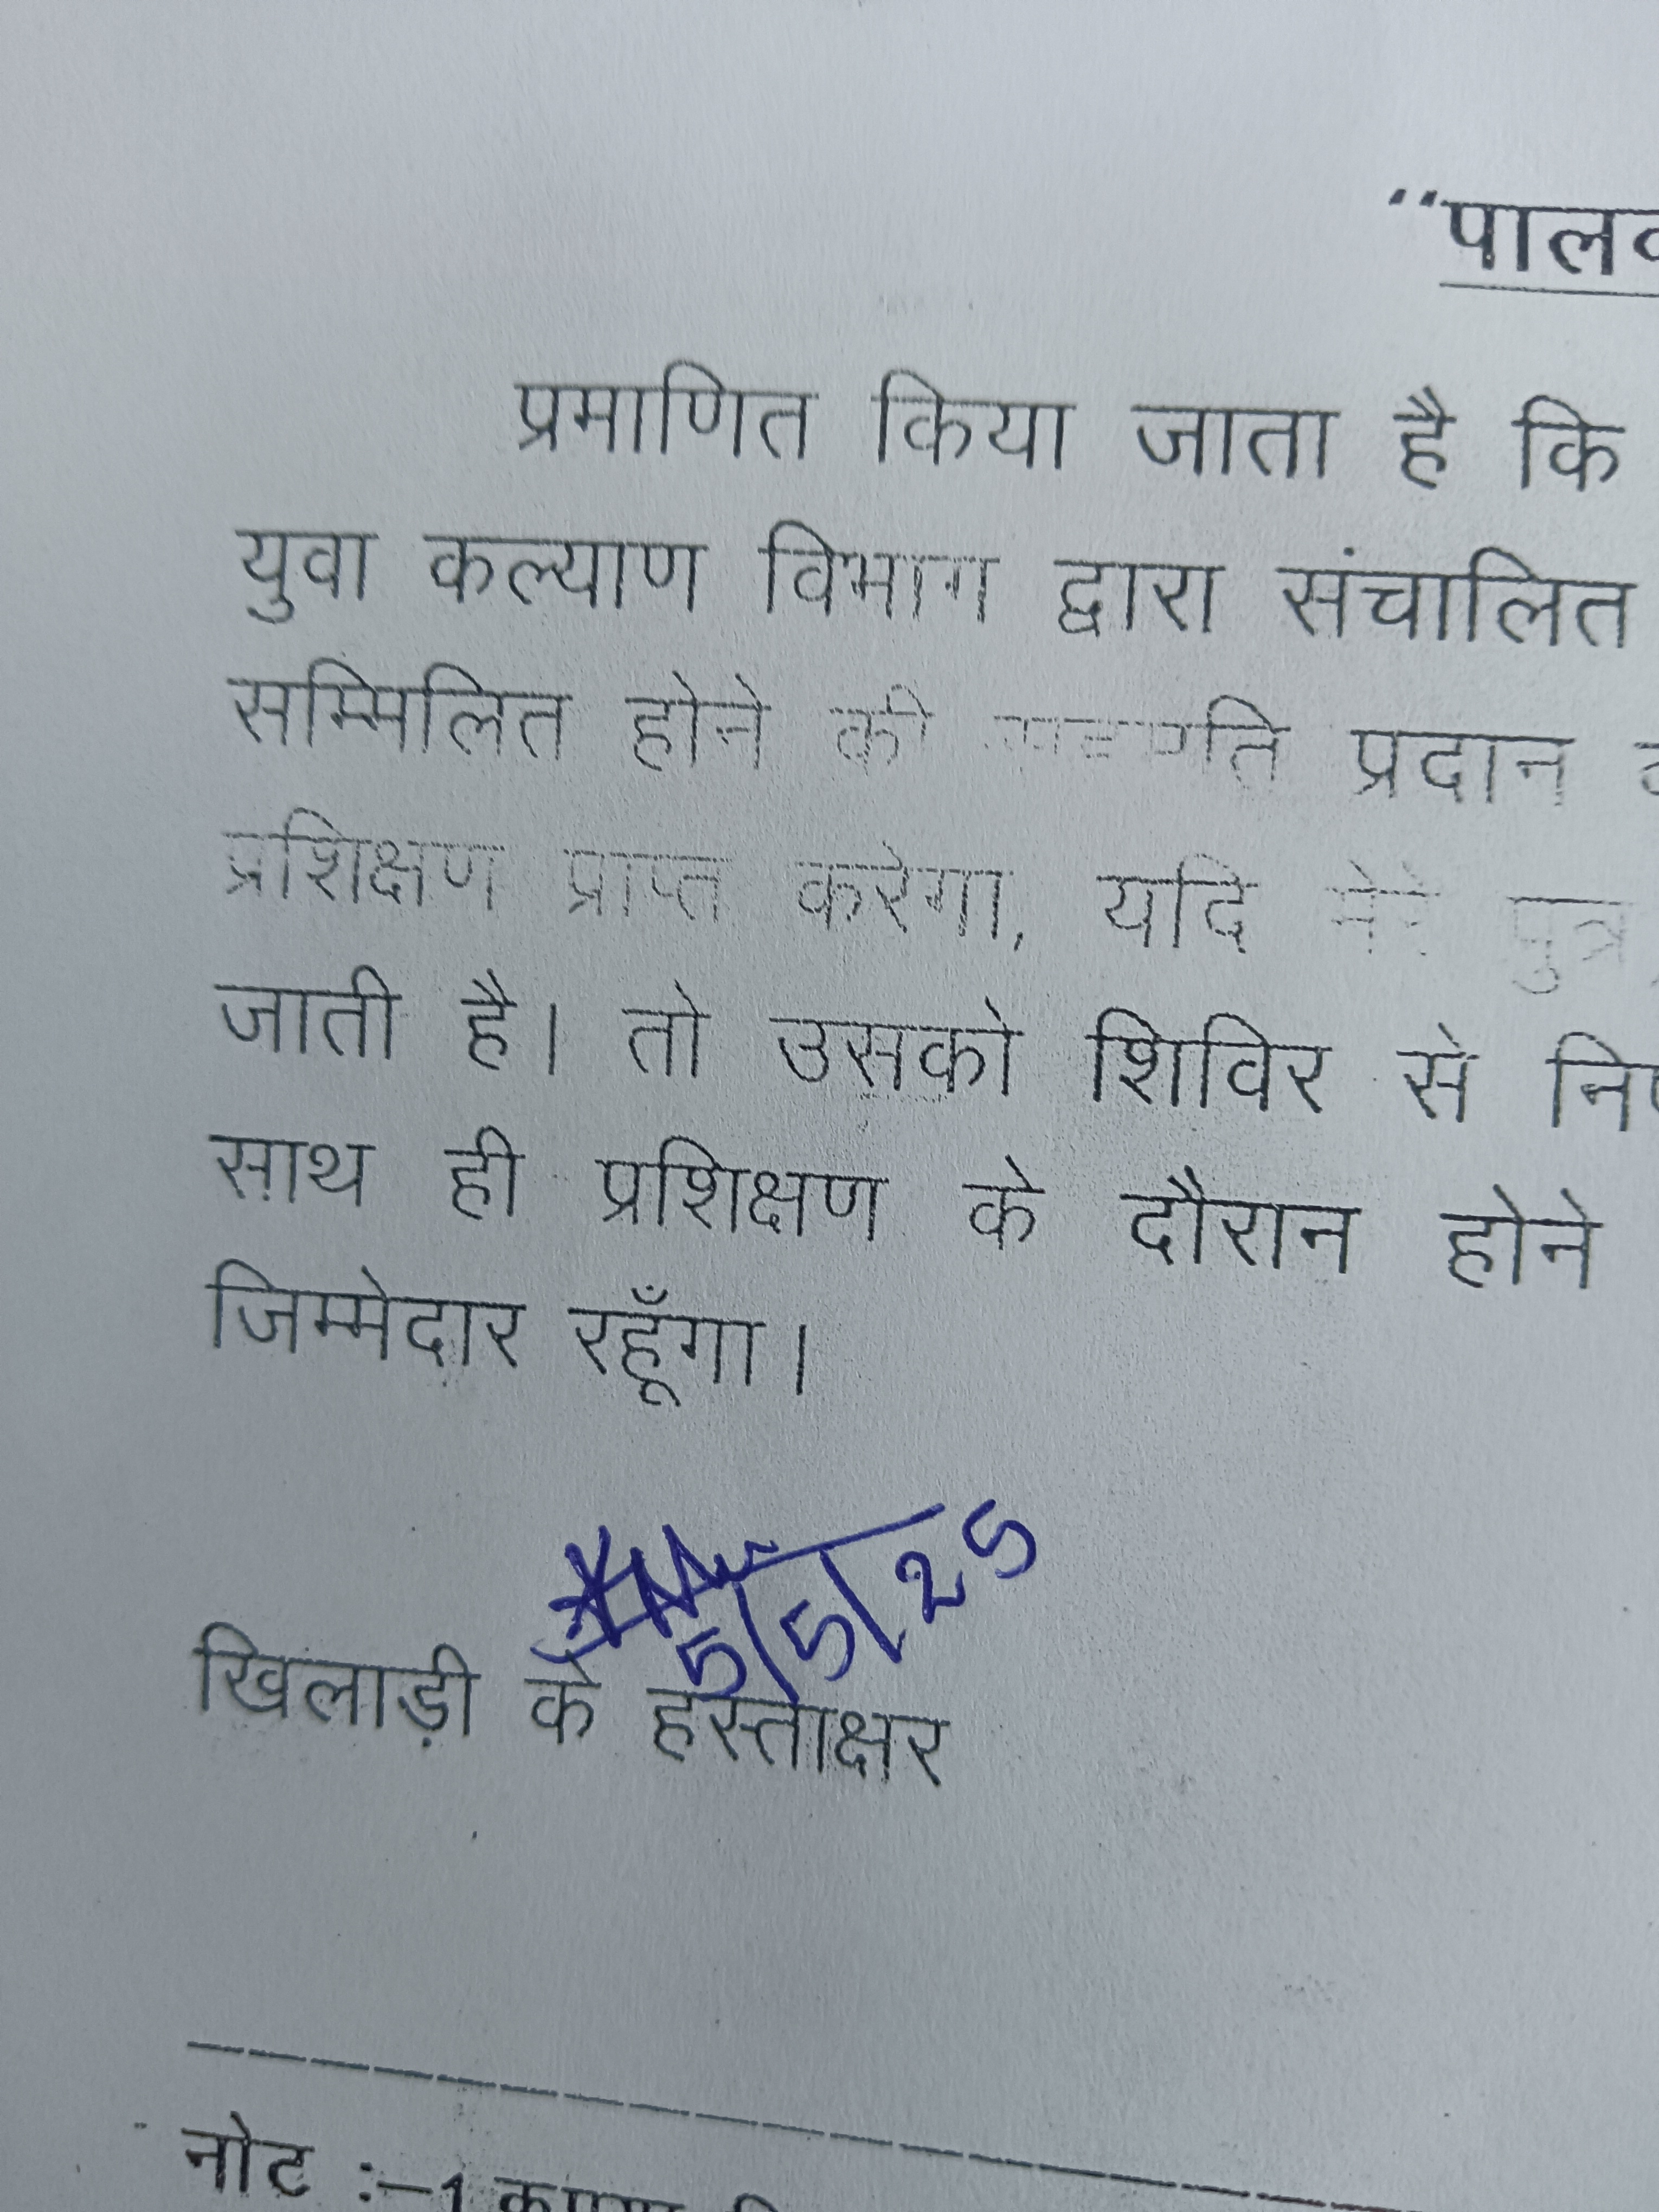 "पालक
प्रमाणित किया जाता है कि
युवा कल्याण विभाग द्वारा संचालित
सम्मिलित होने की प्रदान
प्रशिक्षण प्राप्त करेगा, यदि मेरे पुत्र
जाती है। तो उसको शिविर से
साथ ही प्रशिक्षण के दौरान होने
जिम्मेदार रहूँगा।
5/5/25
खिलाड़ी के हस्ताक्षर
नोट :–1